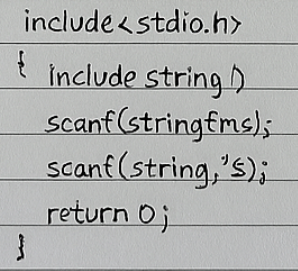 include<stdio.h>
{ include string()
scanf(stringfms);
scanf(string,'s);
return 0;
}